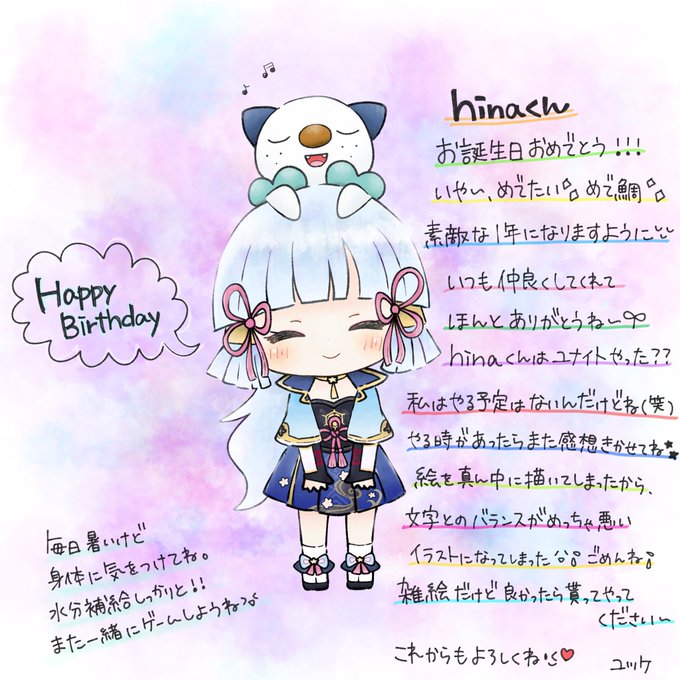 hinaくん
お誕生日おめでとう!!!
いやい、めでたい めで鯛
素敵な1年になりますように
いつも仲良くしてくれて
ほんとありがとうね〜
hinaくんはユナイトやった??
私はやる予定はないんだけどね(笑)
やる時があったらまた感想きかせてね
絵を真ん中に描いてしまったから、
文字とのバランスがめっちゃ悪い
イラストになってしまった ごめんね
雑絵だけど良かったら貰ってやって
ください〜
これからもよろしくね♥
ユッケ
Happy
Birthday
毎日暑いけど
身体に気をつけてね。
水分補給しっかりと!!
また一緒にゲームしようね